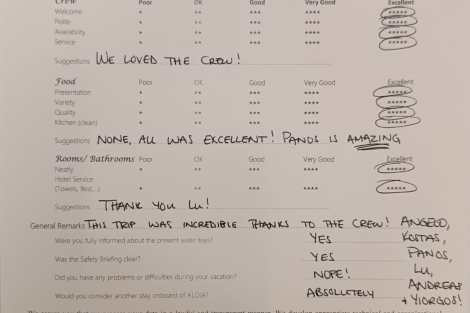 Crew Poor OK Good Very Good Excellent
Welcome * ** *** **** *****
Polite * ** *** **** *****
Availability * ** *** **** *****
Service * ** *** **** *****
Suggestions WE LOVED THE CREW!
Food Poor OK Good Very Good Excellent
Presentation * ** *** **** *****
Variety * ** *** **** *****
Quality * ** *** **** *****
Kitchen (clean) * ** *** **** *****
Suggestions NONE, ALL WAS EXCELLENT! PANOS IS AMAZING
Rooms/ Bathrooms Poor OK Good Very Good Excellent
Neatly * ** *** **** *****
Hotel Service
(Towels, Bed...) * ** *** **** *****
Suggestions THANK YOU LU!
General Remarks THIS TRIP WAS INCREDIBLE THANKS TO THE CREW! ANGELO,
Were you fully informed about the present water toys? YES KOSTAS,
Was the Safety Briefing clear? YES PANOS,
Did you have any problems or difficulties during your vacation? NOPE! LU,
Would you consider another stay onboard of ALOIA? ABSOLUTELY ANDREAS
& YIORGOS!